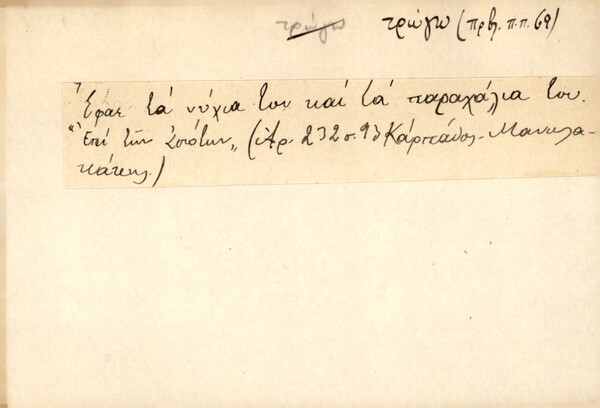 τρώγω τρώγω (πρβλ. π.π. 69)
Ἔφαε τά νύχια του καί τά παραχάλια του.
"Ἐπί τῶν (Ἀρ. 232 σ. 93 Κάρπαθος - Μανωλα-
κάκης)